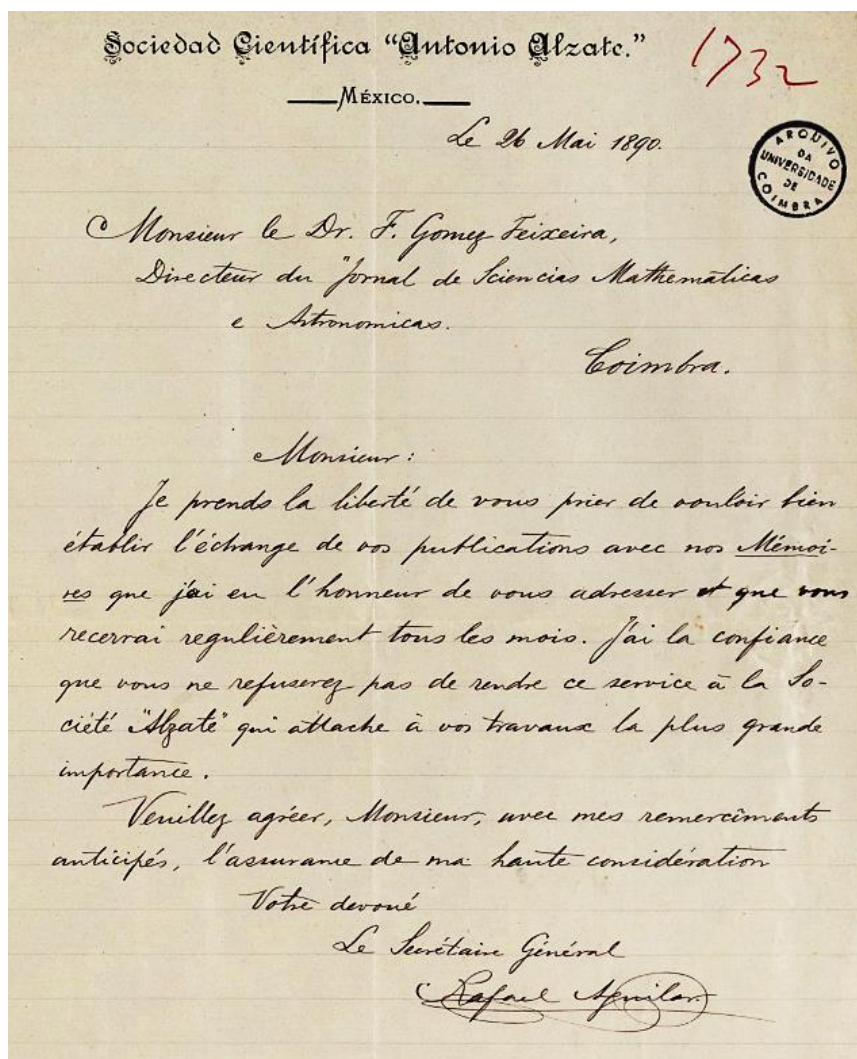 Sociedad Científica "Antonio Alzate."
1732
MÉXICO.
Le 26 Mai 1890.
ARQUIVO
DA
UNIVERSIDADE
DE
COIMBRA
Monsieur le Dr. F. Gomez Teixeira,
Directeur du "Jornal de Sciencias Mathematicas
e Astronomicas.
Coimbra.
Monsieur :
Je prends la liberté de vous prier de vouloir bien
établir l'échange de vos publications avec nos Mémoi-
res que j'ai eu l'honneur de vous adresser et que vous
recerrai regulièrement tous les mois. J'ai la confiance
que vous ne refuserez pas de rendre ce service à la So-
ciété "Alzate" qui attache à vos travaux la plus grande
importance.
Veuillez agréer, Monsieur, avec mes remercîments
anticipés, l'assurance de ma haute considération
Votre devoué
Le Secrétaire Général
Rafael Aguilar